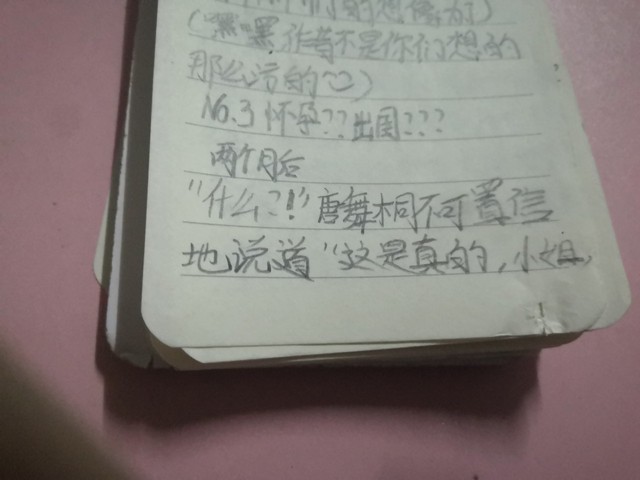 们的想像力)
(嘿嘿作者不是你们想的
那么污的)
No.3 怀孕??出国???
两个月后
"什么?!"唐舞桐不可置信
地说道"这是真的,小姐,